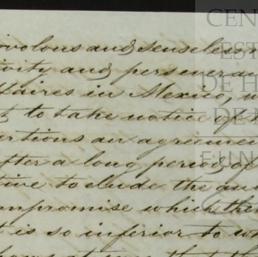 ivolous and senseless
ivity, and persevera
ffaires in Mexico, w
to take notice of
ertions an agreemen
after a long period of
tive to elude the
mpromise which the
t is so inferior to
CEN
EST
DE H
DE
FUN